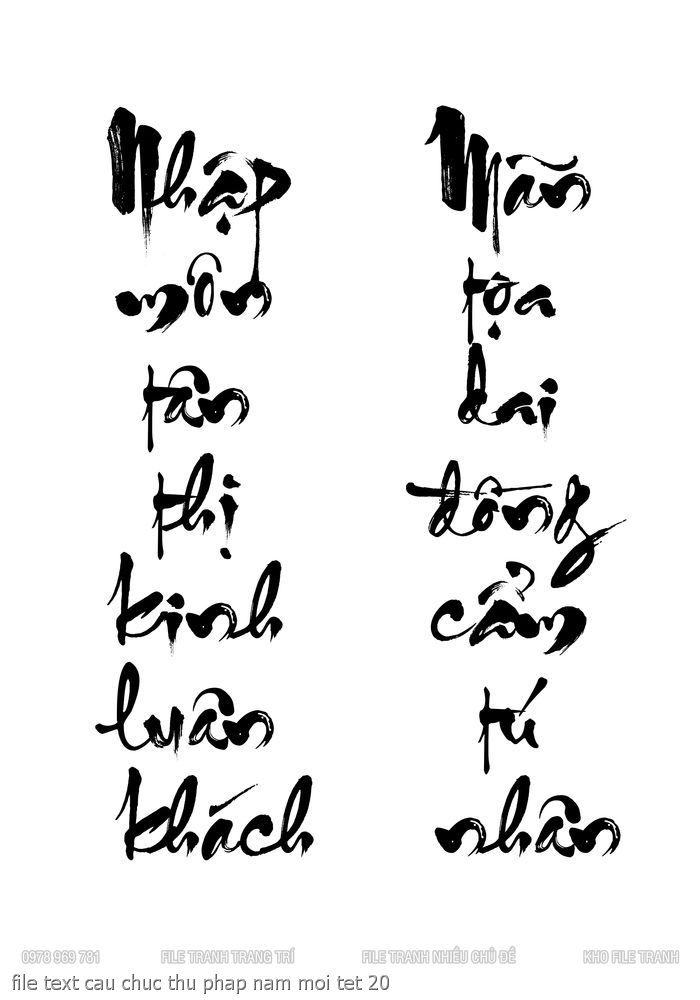 Nhập
môn
tân
thị
kinh
luân
khách
Mãn
tọa
dai
đông
cẩm
tú
nhân
0978 969 781 FILE TRANH TRANG TRÍ FILE TRANH NHIỀU CHỦ ĐỀ KHO FILE TRANH
file text cau chuc thu phap nam moi tet 20